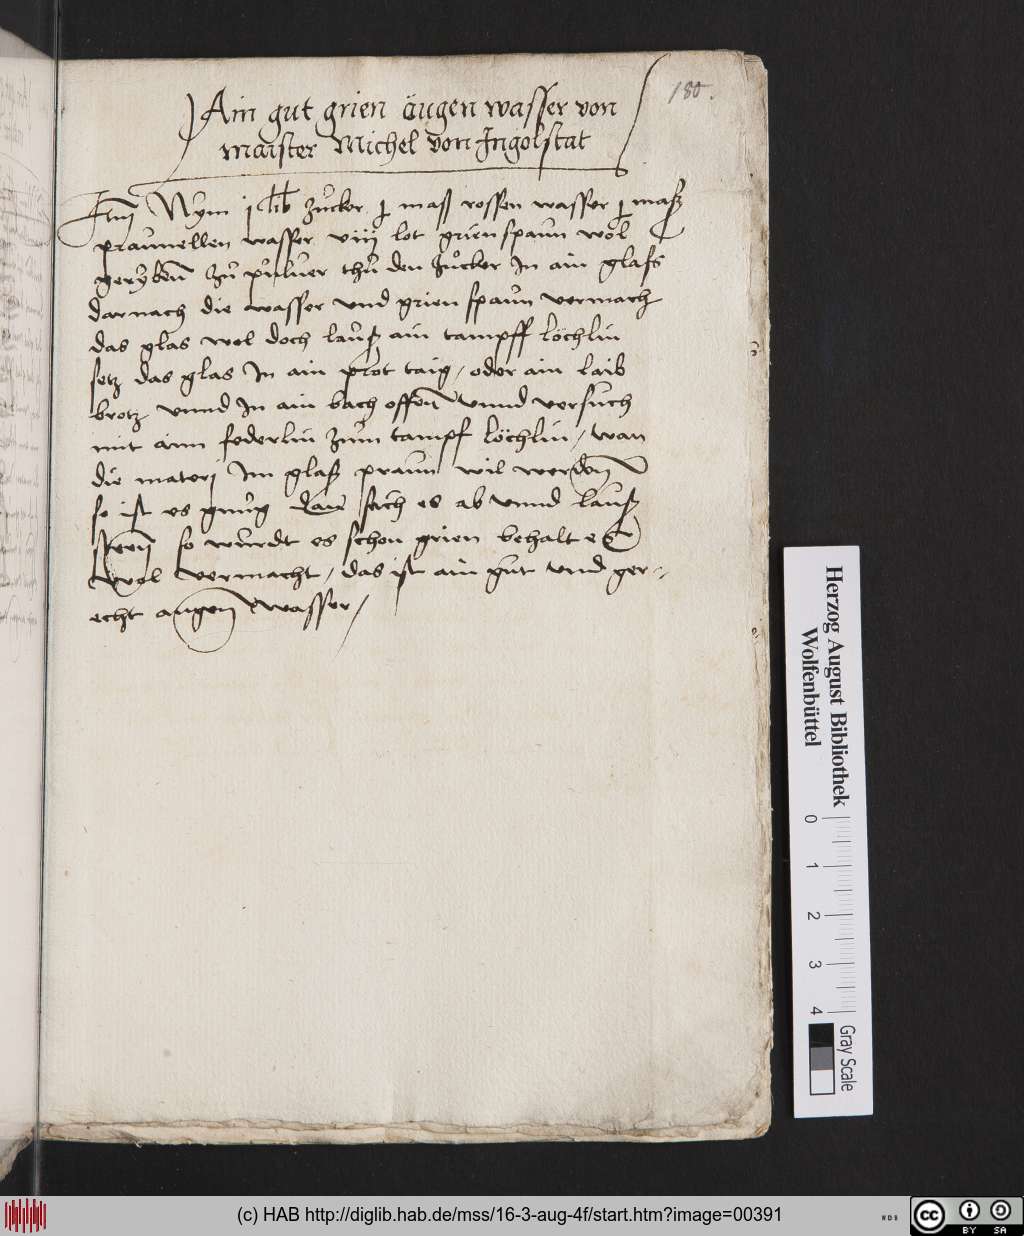 180.
Ain gut grien augen wasser von
maister Michel von Ingolstat
Itm Nym j lib zucker j mass rossen wasser j masz
praunellen wasser viij lot grienspaun wol
geryben zu puluer thu den zucker In ain glass
darnach die wasser vnd grien spaun vermach
das glas wol doch lausz ain tampff löchlin
setz das glas In ain prot taig / oder ain laib
brotz vnnd In ain bach offen vnnd versuch
mit aim federlin zum tampf löchlin / wan
die materj Im glasz praun wil werden
so ist es gnug dan sech es ab vnnd lausz
sten so wurdt es schon grien behalt es
wol vermacht / das ist ain gut vnd ger-
echt augen wasser /
Herzog August Bibliothek
Wolfenbüttel
0 1 2 3 4
Gray Scale
(c) HAB http://diglib.hab.de/mss/16-3-aug-4f/start.htm?image=00391
cc BY SA